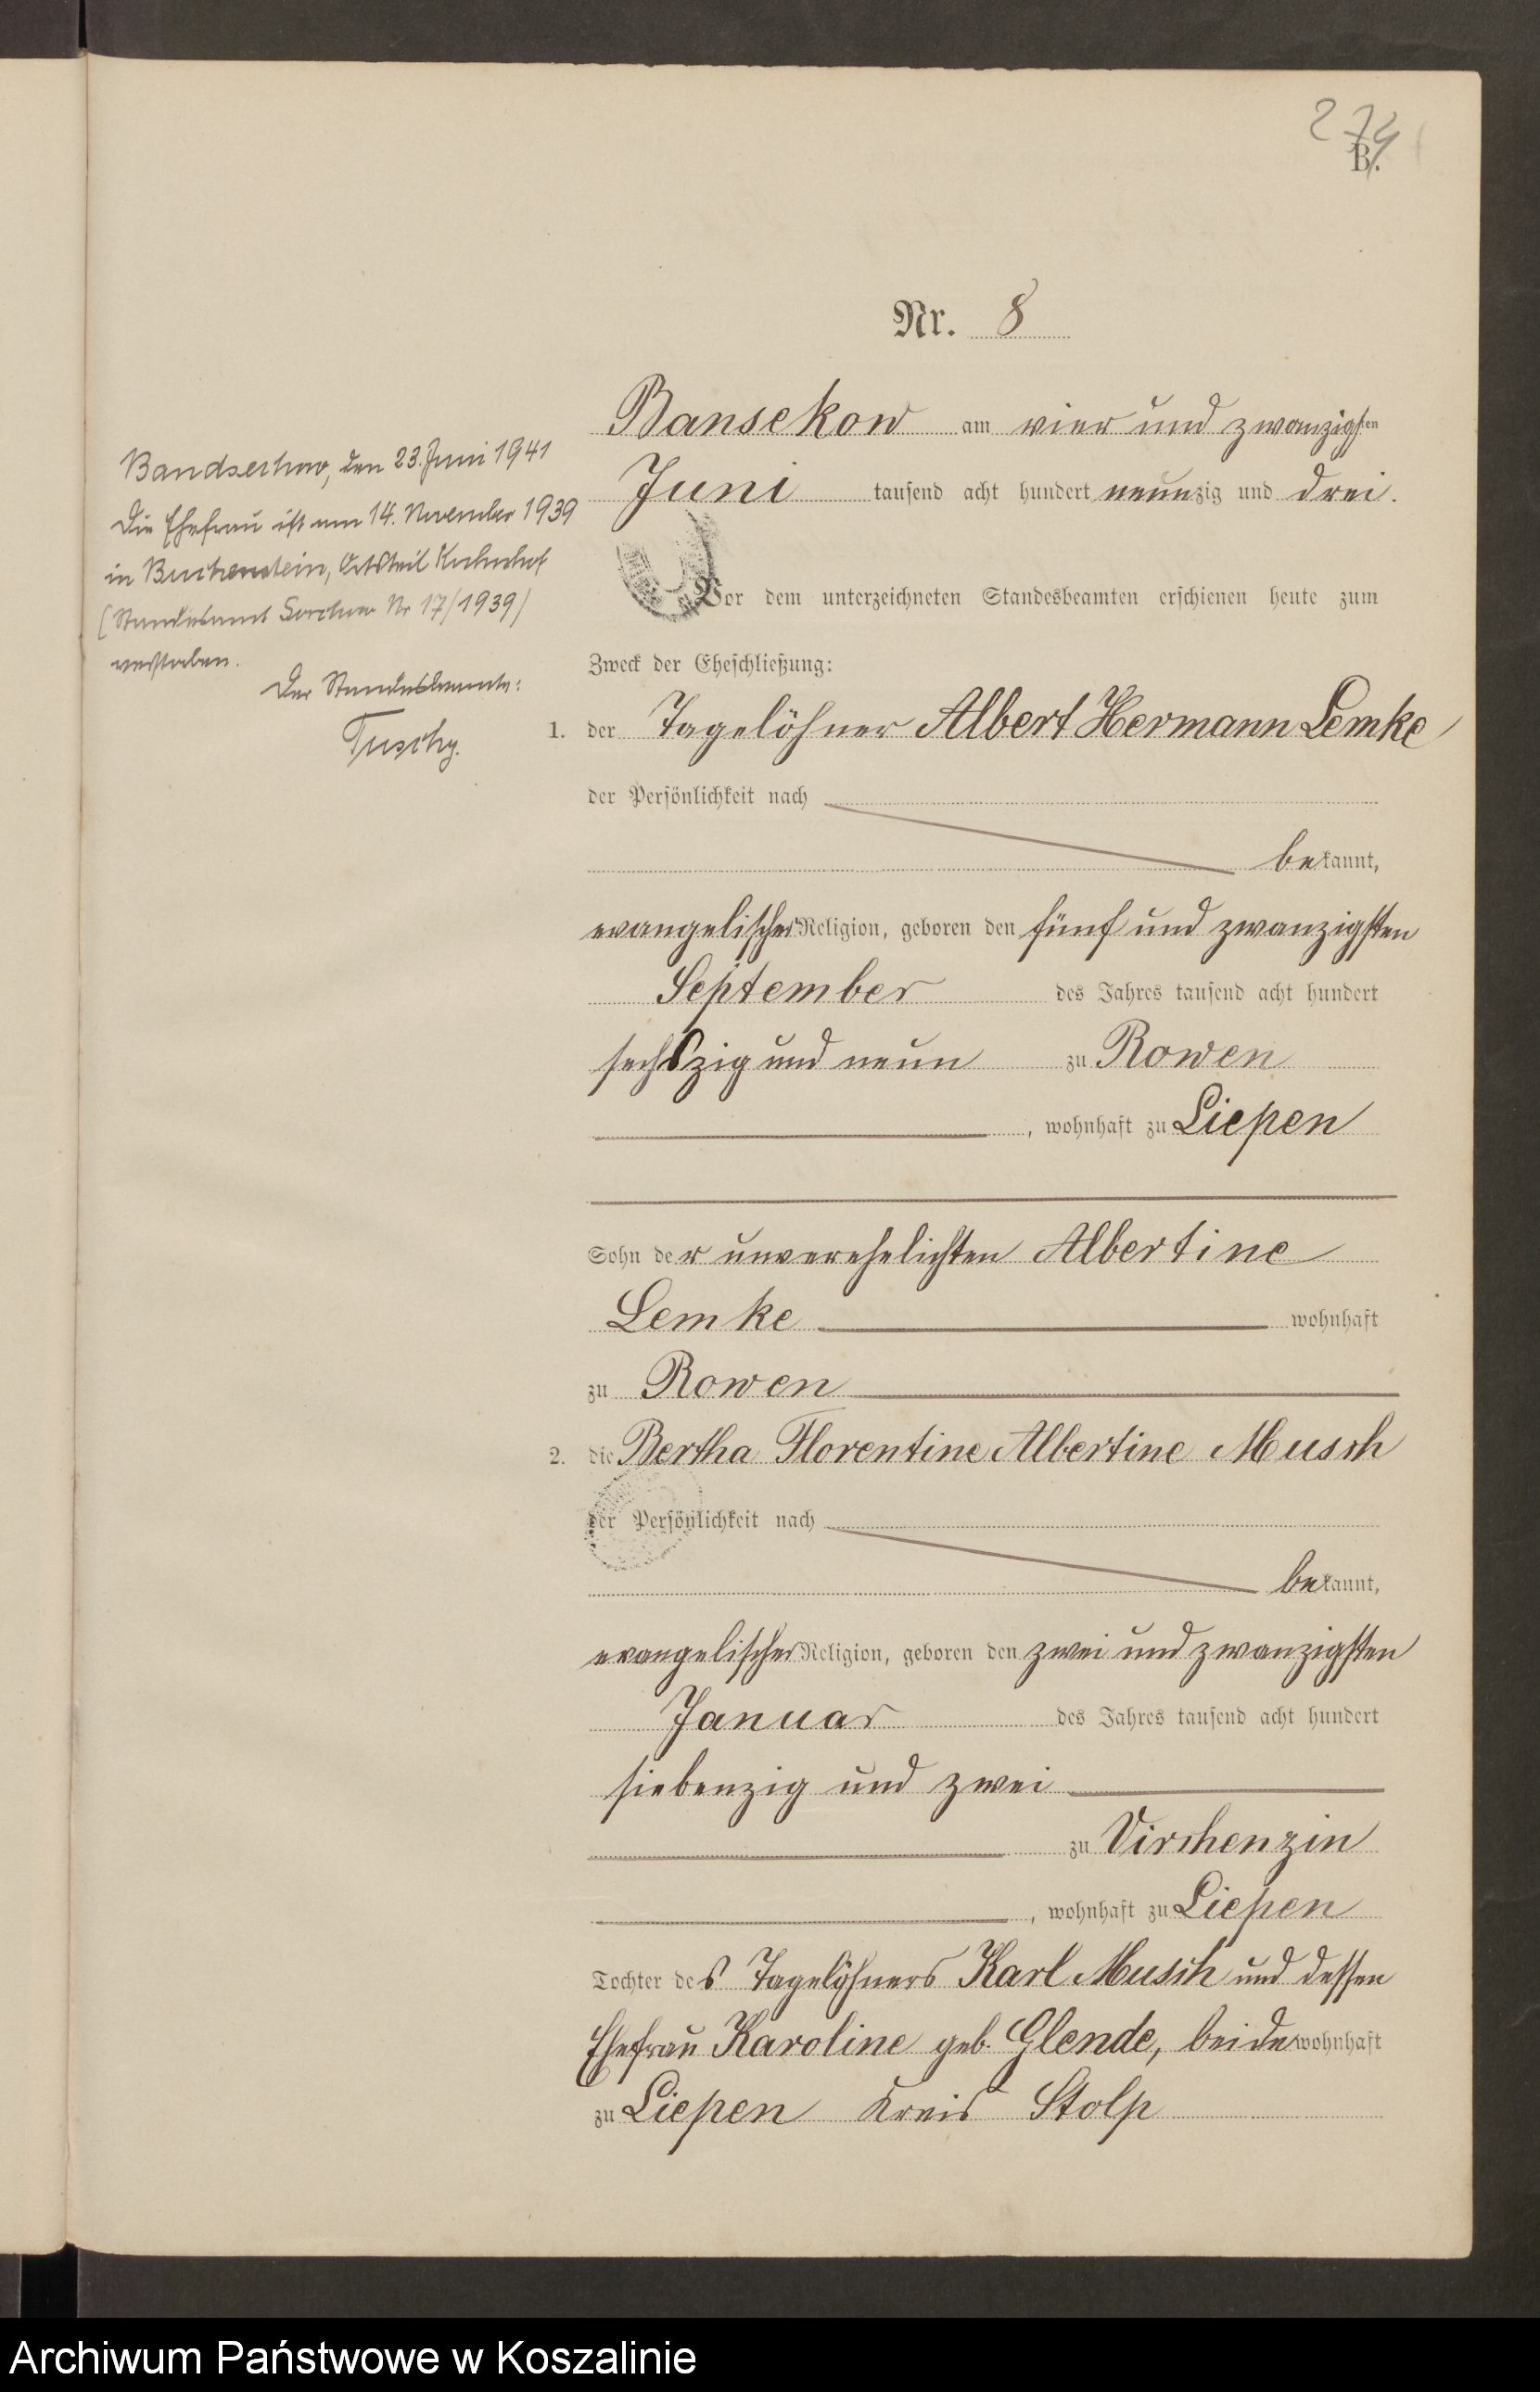 274
B.
Nr. 8
Bansekow am vier und zwanzigsten
Juni tausend acht hundert neunzig und drei.
Vor dem unterzeichneten Standesbeamten erschienen heute zum
Zweck der Eheschließung:
1. der Tagelöhner Albert Hermann Lemke
der Persönlichkeit nach
bekannt,
evangelischer Religion, geboren den fünf und zwanzigsten
September des Jahres tausend acht hundert
sechszig und neun zu Rowen
, wohnhaft zu Liepen
Sohn der unverehelichten Albertine
Lemke wohnhaft
zu Rowen
2. die Bertha Florentine Albertine Musch
der Persönlichkeit nach
bekannt,
evangelischer Religion, geboren den zwei und zwanzigsten
Januar des Jahres tausend acht hundert
siebenzig und zwei
zu Virchenzin
, wohnhaft zu Liepen
Tochter des Tagelöhners Karl Musch und dessen
Ehefrau Karoline geb. Glende, beide wohnhaft
zu Liepen Kreis Stolp
Bandsechow, den 23. Juni 1941
Die Ehefrau ist am 14. November 1939
in Buchenstein, Ortsteil
(Standesamt Sorchow Nr 17/1939)
verstorben.
Der Standesbeamte:
Archiwum Państwowe w Koszalinie